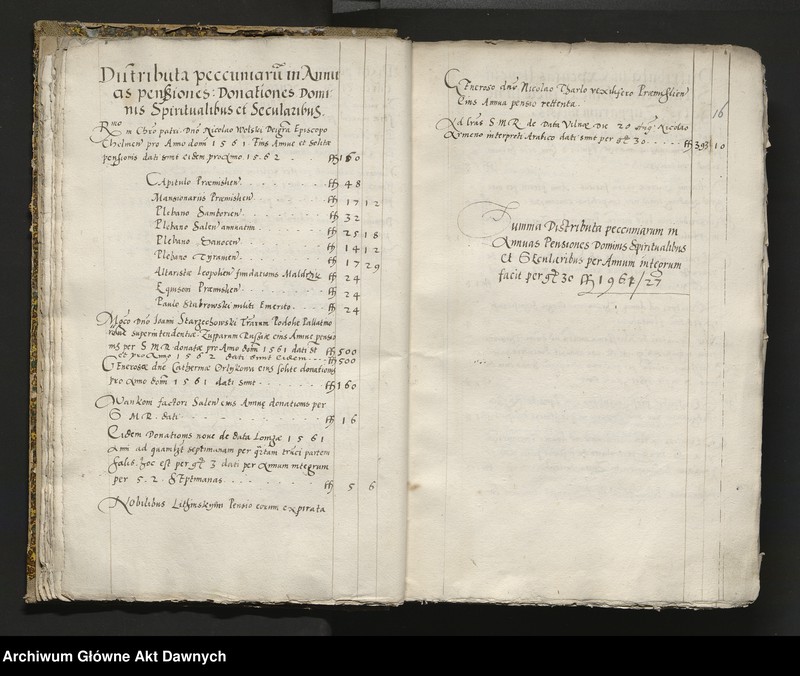 Distributa peccuniarū in Annu
as pensiones: Donationes Domi
nis Spiritualibus et Secularibus.
Rmo in Chro patri Dno Nicolao Wolski Dei gra Episcopo
Chelmen pro Anno dom 1561 Eius Annue et solite
pensionis dati sunt eidem pro Anno 1562 . . . ff 160
Capitulo Præmislien . . . ff 48
Mansionariis Præmislien . . . ff 17 12
Plebano Samborien . . . ff 32
Plebano Salen annuatim . . . ff 25 18
Plebano Sanocen . . . ff 14 12
Plebano Tyrawien . . . ff 17 29
Altaristæ Leopolien fundationis . . . ff 24
Præmislien . . . ff 24
Paulo Stabrowski militi Emerito . . . ff 24
Mgco Dno Joani Starzechowski Terrarum Podoliæ Pallatino
superintendenti Zupparum Russiæ eius Annue pensio
nis per S M R donatæ pro Anno dom 1561 dati st ff 500
et pro Anno 1562 dati sunt eidem . . . ff 500
Generosæ dne Catherinæ eius solite donationis
pro Anno dom 1561 dati sunt . . . ff 160
Iwankom factori Salen eius Annuę donationis per
S M R dati . . . ff 16
Eidem Donationis noue de data Lomzæ 1561
ad septimanam per
hoc est per gr 3 dati per Annum integrum
per 52 Septimanas . . . ff 5 6
Nobilibus Pensio eorum expirata
Generoso dno Nicolao Tharlo vexillifero Præmislien
Eius Annua pensio retenta
16
Ad lras S M R de Data Vilnæ Die 20 Nicolao
interpreti Arabico dati sunt per gr 30 . . . ff 393 10
Summa Distributa peccuniarum in
Annuas Pensiones Dominis Spiritualibus
et Secularibus per Annum integrum
facit per gr 30 ff 1961/27
Archiwum Główne Akt Dawnych